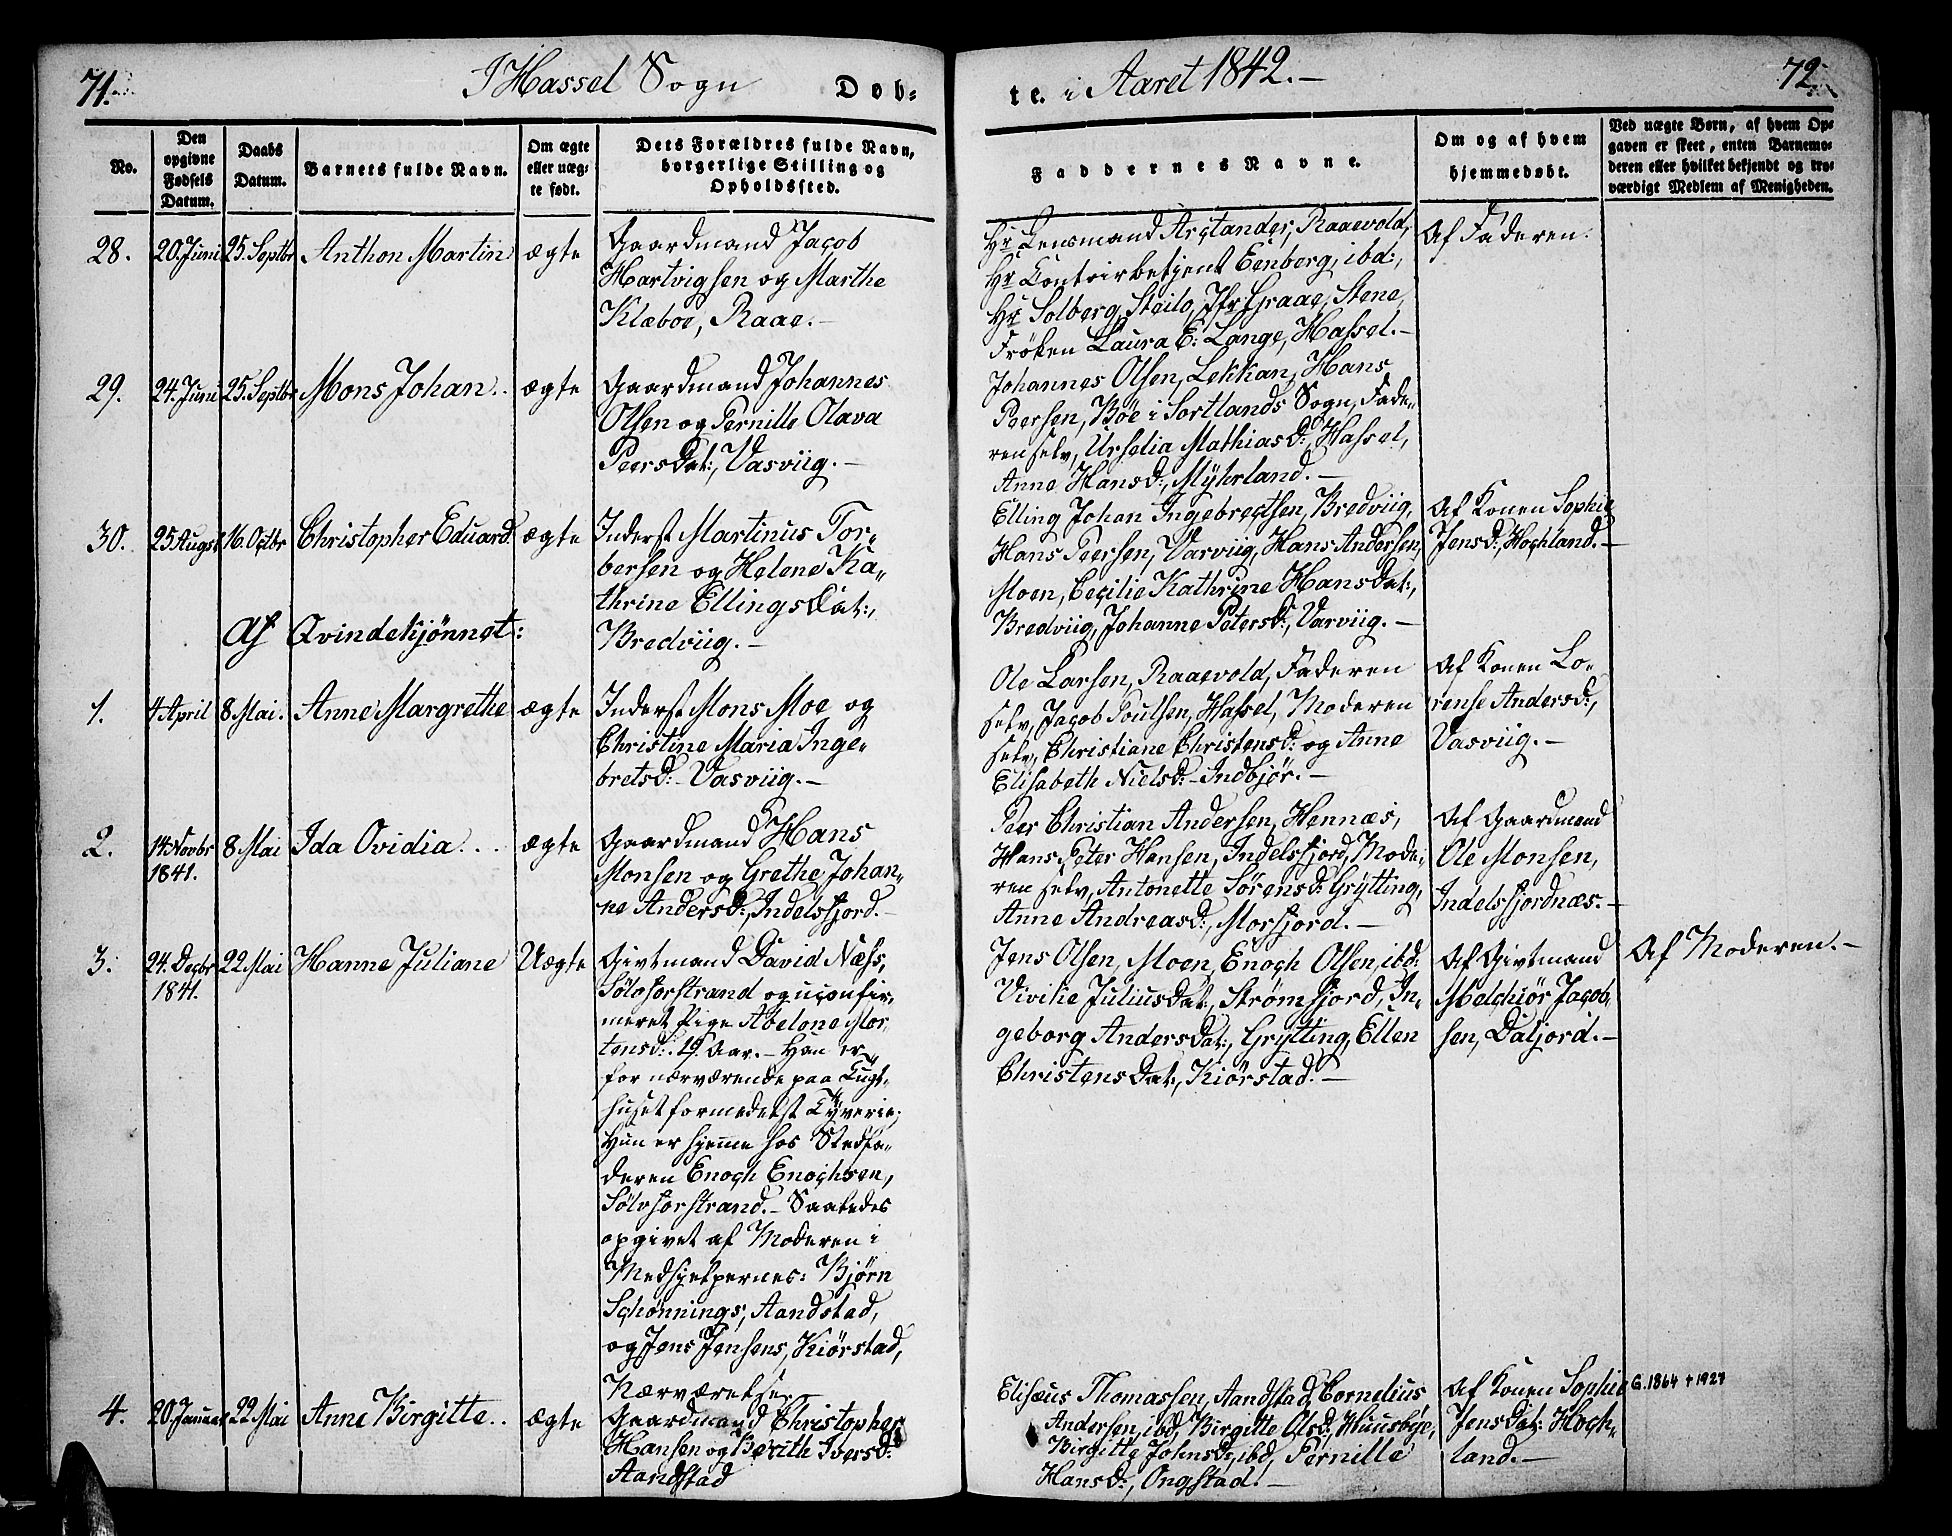 71.
I Hassel Sogn
Døb-
te. i Aaret 1842.-
72.
No.
Den
opgivne
Fødsels
Datum.
Daabs
Datum.
Barnets fulde Navn.
Om ægte
eller uæg-
te født.
Dets Forældres fulde Navn,
borgerlige Stilling og
Opholdssted.
Faddernes Navne.
Om og af hvem
hjemmedøbt.
Ved uægte Børn, af hvem Op-
gaven er skeet, enten Barnemo-
deren eller hvilket bekjendt og tro-
værdigt Medlem af Menigheden.
28.
20. Juni
25. Septbr
Anthon Martin
ægte
Gaardmand Jacob
Hartvigsen og Marthe
Klæboe, Raae.-
Hr Lensmand Arctander, Raaevold,
Hr Contoirbetjent Eenberg, ibd:,
Hr Solberg, Steilo, Jfr Graae, Stene,
Frøken Laura E: Lange, Hassel.-
Af Faderen.
29.
24. Juni
25. Septbr
Mons Johan..
ægte
Gaardmand Johannes
Olsen og Pernille Olava
PeersDat:, Vasviig.-
Johannes Olsen, Lekkan, Hans
Peersen, Bøe i Sortlands Sogn, Fade-
ren selv, Urselia Mathiasd:, Hassel,
Anne Hansd:, Myhrland.-
30.
25 August
16. Octbr
Christopher Eduard
ægte
Inderst Martinus Tor-
bersen og Helene Ka-
thrine EllingsDat:,
Bredviig.-
Elling Johan Ingebrectsen, Bredviig,
Hans Peersen, Varviig, Hans Andersen,
Moen, Cecilie Kathrine HansDat:,
Bredviig, Johanne Petersd:, Varviig.-
Af Konen Sophie
Jensd:, Hochland.-
Af Qvindekjønnet:
1.
4 April
8 Mai.
Anne Margrethe
ægte
Inderst Mons Moe og
Christine Maria Inge-
bretsd:- Vasviig.-
Ole Larsen, Raaevold, Faderen
selv, Jacob Poulsen, Hassel, Moderen
selv, Christiane Christensd: og Anne
Elisabeth Nielsd:- Indbjør.-
Af Konen Lo-
rense Andersd:,
Vasviig.-
2.
14 Novbr
1841.
8 Mai
Ida Ovidia...
ægte
Gaardmand Hans
Monsen og Grethe Johan-
ne Andersd:, Indelsfjord.-
Peer Christian Andersen, Hennæs,
Hans Peter Hansen, Indelsfjord, Mode-
ren selv, Antonette Sørensd: Grytting,
Anne Andreasd:, Morfjord.-
Af Gaardmand
Ole Monsen,
Indelsfjordnæs.-
3.
24. Decbr
1841.
22 Mai
Hanne Juliane
Uægte
Givtmand David Næss,
Sløverstrand og uconfir-
meret Pige Abelone Mor-
tensd:. 19 Aar.- Han er
for nærværende paa Tugt-
huset formedelst Tyverie;
Hun er hjemme hos Stedfa-
deren Enoch Enochsen,
Saaledes
opgivet af Moderen i
Medhjelpernes: Bjørn
Schønnings, Aandstad,
og Jens Jensens, Kiørstad,
Nærværelse.
Jens Olsen, Moen, Enoch Olsen, ibd:
Vivikie JuliusDat:, Strømfjord, In-
geborg AndersDat:, Grytting, Ellen
ChristensDat:, Kiørstad.-
Af Givtmand
Melchior Jacob-
sen, Daljord.-
Af Moderen.-
4.
20. Januar
22 Mai
Anne Birgitte..
ægte
Gaardmand Christopher
Hansen og Berith Iversd:
Aandstad
Elisæus Thomassen, Aandstad, Cornelius
Andersen, ibd, Birgitte Olsd:, Huusbye,
Birgitte Johnsd:, ibd, Pernille
Hansd:, Ongstad.-
Af Konen Sophie
JensDat: Hoch-
land.-
G. 1864 + 1927